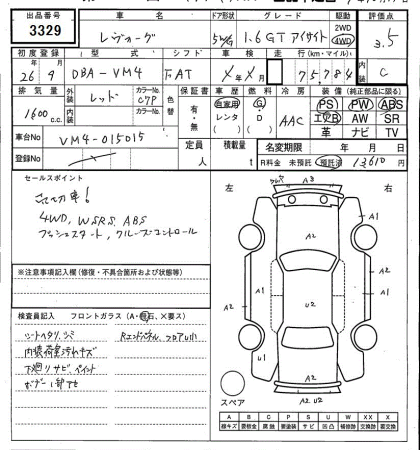 出品番号 車名 ドア形状 グレード 駆動 評価点
3329 レヴォーグ 5W/G 1.6GT アイサイト 2WD 4WD 3.5
初度登録 型式 シフト 車検 走行(km・マイル) 内装
26年 9月 DBA-VM4 FAT X年X月 75784 C
排気量 外装 カラーNo. 色替 車歴 燃料 冷房 装備 (純正部品に限る)
1600c.c. レッド C7P 有・無 自家用 レンタ G・D AAC PS PW ABS
内装 カラーNo. エアB AW SR
革 ナビ TV
車台No VM4-015015 定員 人 積載量 t 名変期限 年 月 日
登録No R料金 未預託 預託済 13610 円
セールスポイント
4WD, W.SRS, ABS
プッシュスタート, クルーズコントロール
※注意事項記入欄(修復・不具合箇所および改造等)
検査員記入 フロントガラス(A・飛石、X要ス)
シートヘタリ、シミ Rエンドパネル、フロアU小
内装荷室汚れキズ
下廻りサビ、ペイント
ボデー1部キセ
左 右
A3
A1
A2
A1 A1
A2 U2 A2
U1
スペア A2 U2
A B C P S U W X XX
線キズ 要板金 腐蝕 要塗装 サビ 凹凸 補修跡 交換跡 要交換